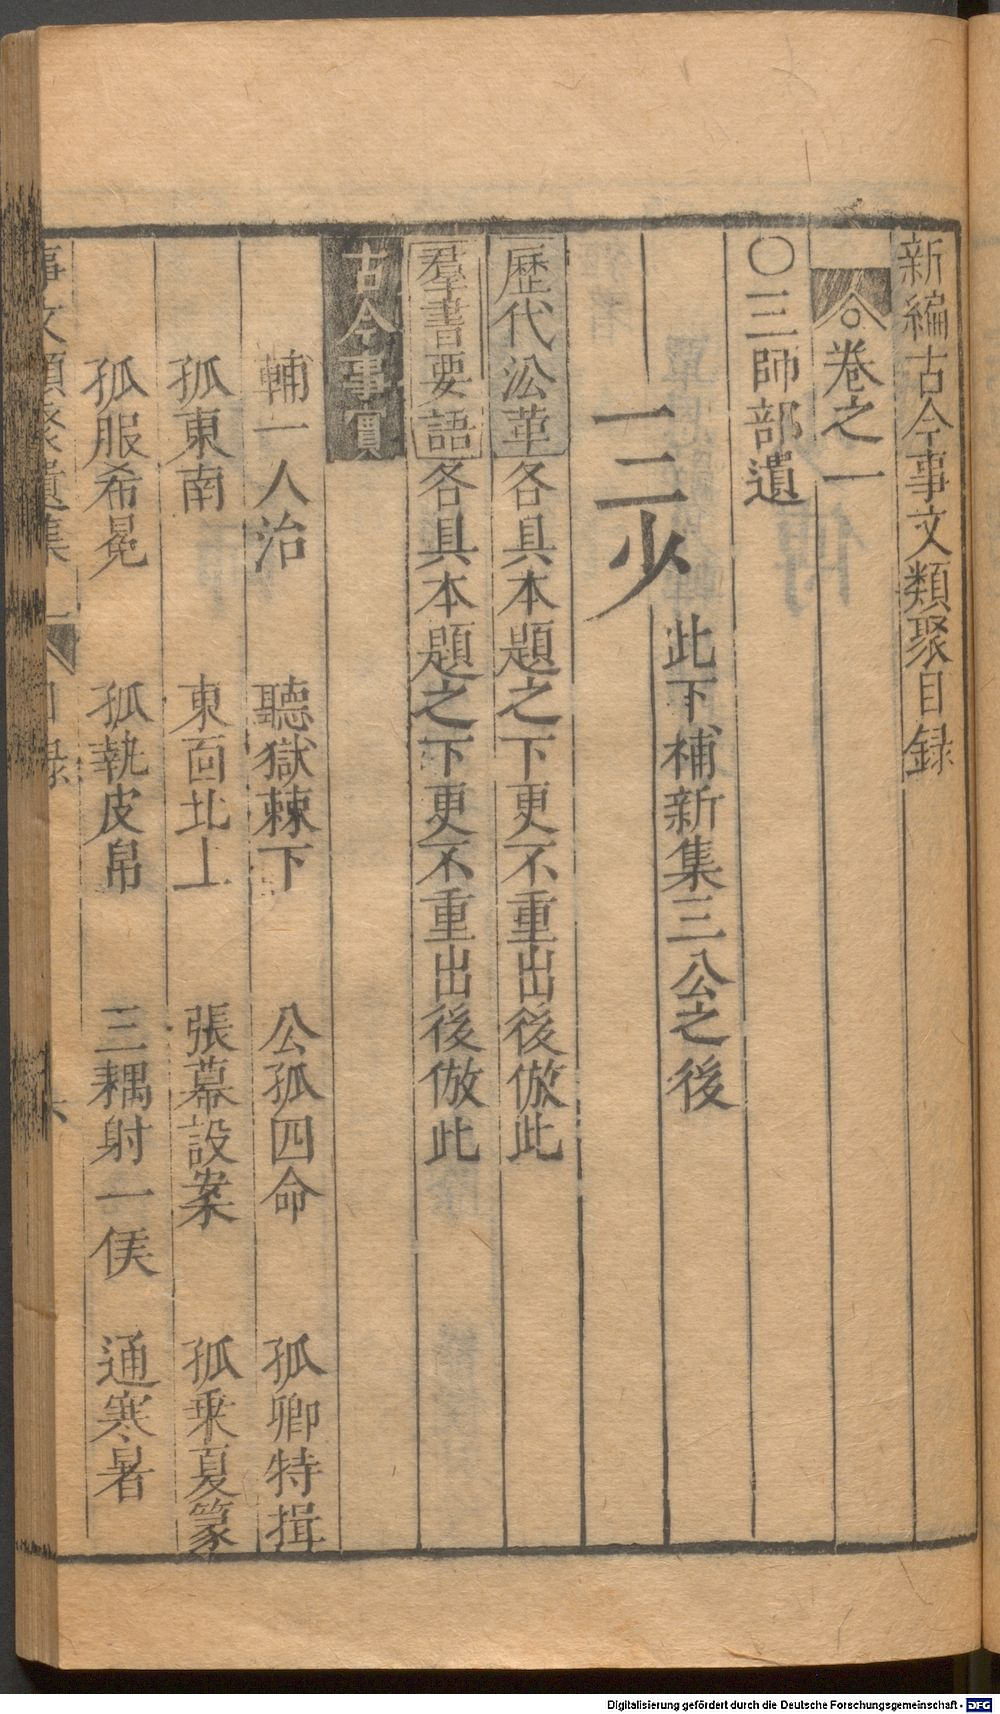 新編古今事文類聚目録
卷之一
〇三師部遺
三少
此下補新集三公之後
歷代㳂革各具本題之下更不重出後倣此
羣書要語各具本題之下更不重出後倣此
古今事實
輔一人治 聽獄棘下 公孤四命 孤卿特揖
孤東南 東面北上 張幕設案 孤乗夏篆
孤服希冕 孤執皮帛 三耦射一侯 通寒暑
事文類聚遺集 目録 六
Digitalisierung gefördert durch die Deutsche Forschungsgemeinschaft - DFG